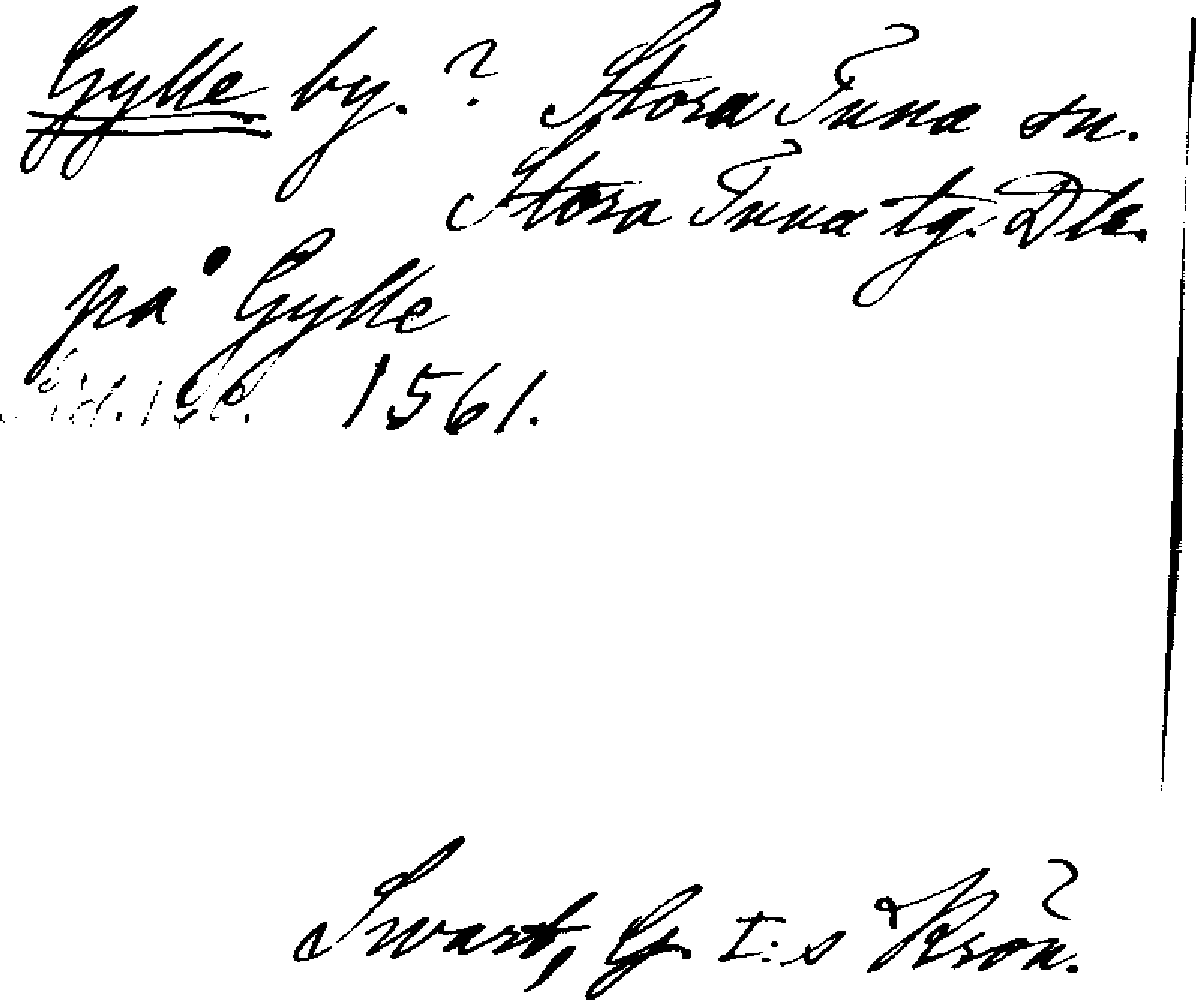 Gylle by. ? Stora Tuna sn.
Stora Tuna tg. Dla.
på Gylle
1561.
Swart, G. I:s Krön.